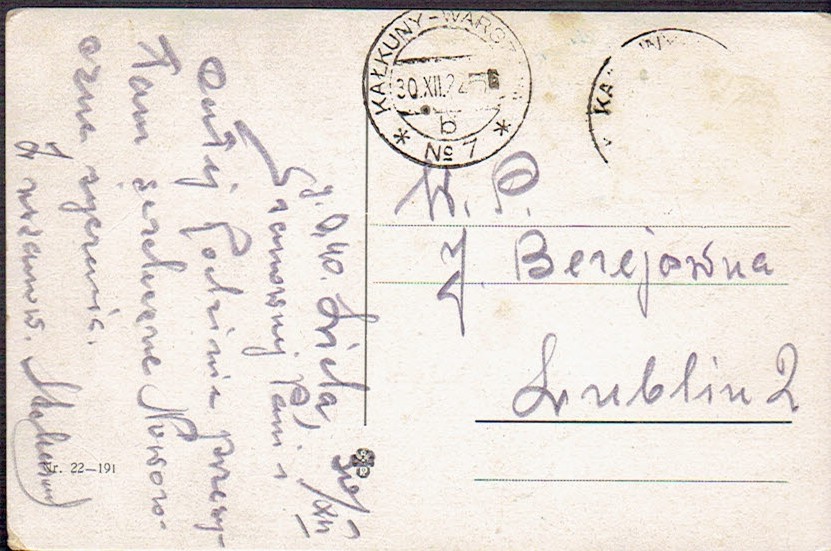 KAŁKUNY-WARS
30.XII.24
b
№ 7
KA
W. P.
J. Berejowna
Lublin 2
30/XII
Szanownej Pani i
całej Rodzinie przesy-
łam serdeczne Noworo-
czne życzenia.
Z uszanow.
Nr. 22—191